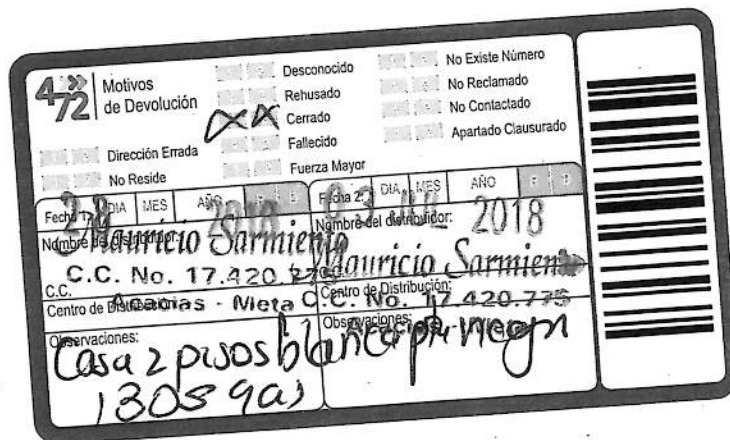 4-72 Motivos de Devolución
Desconocido
Rehusado
Cerrado
Fallecido
Fuerza Mayor
No Existe Número
No Reclamado
No Contactado
Apartado Clausurado
Dirección Errada
No Reside
Fecha 1: DIA MES AÑO R D
28 2018
Nombre del distribuidor:
Mauricio Sarmiento
C.C. No. 17.420.775
C.C.
Centro de Distribución:
Acacias - Meta
Observaciones:
Casa 2 pisos blanca pta negra
Fecha 2: DIA MES AÑO R D
2018
Nombre del distribuidor:
Mauricio Sarmiento
C.C. No. 17.420.775
Centro de Distribución:
Observaciones: